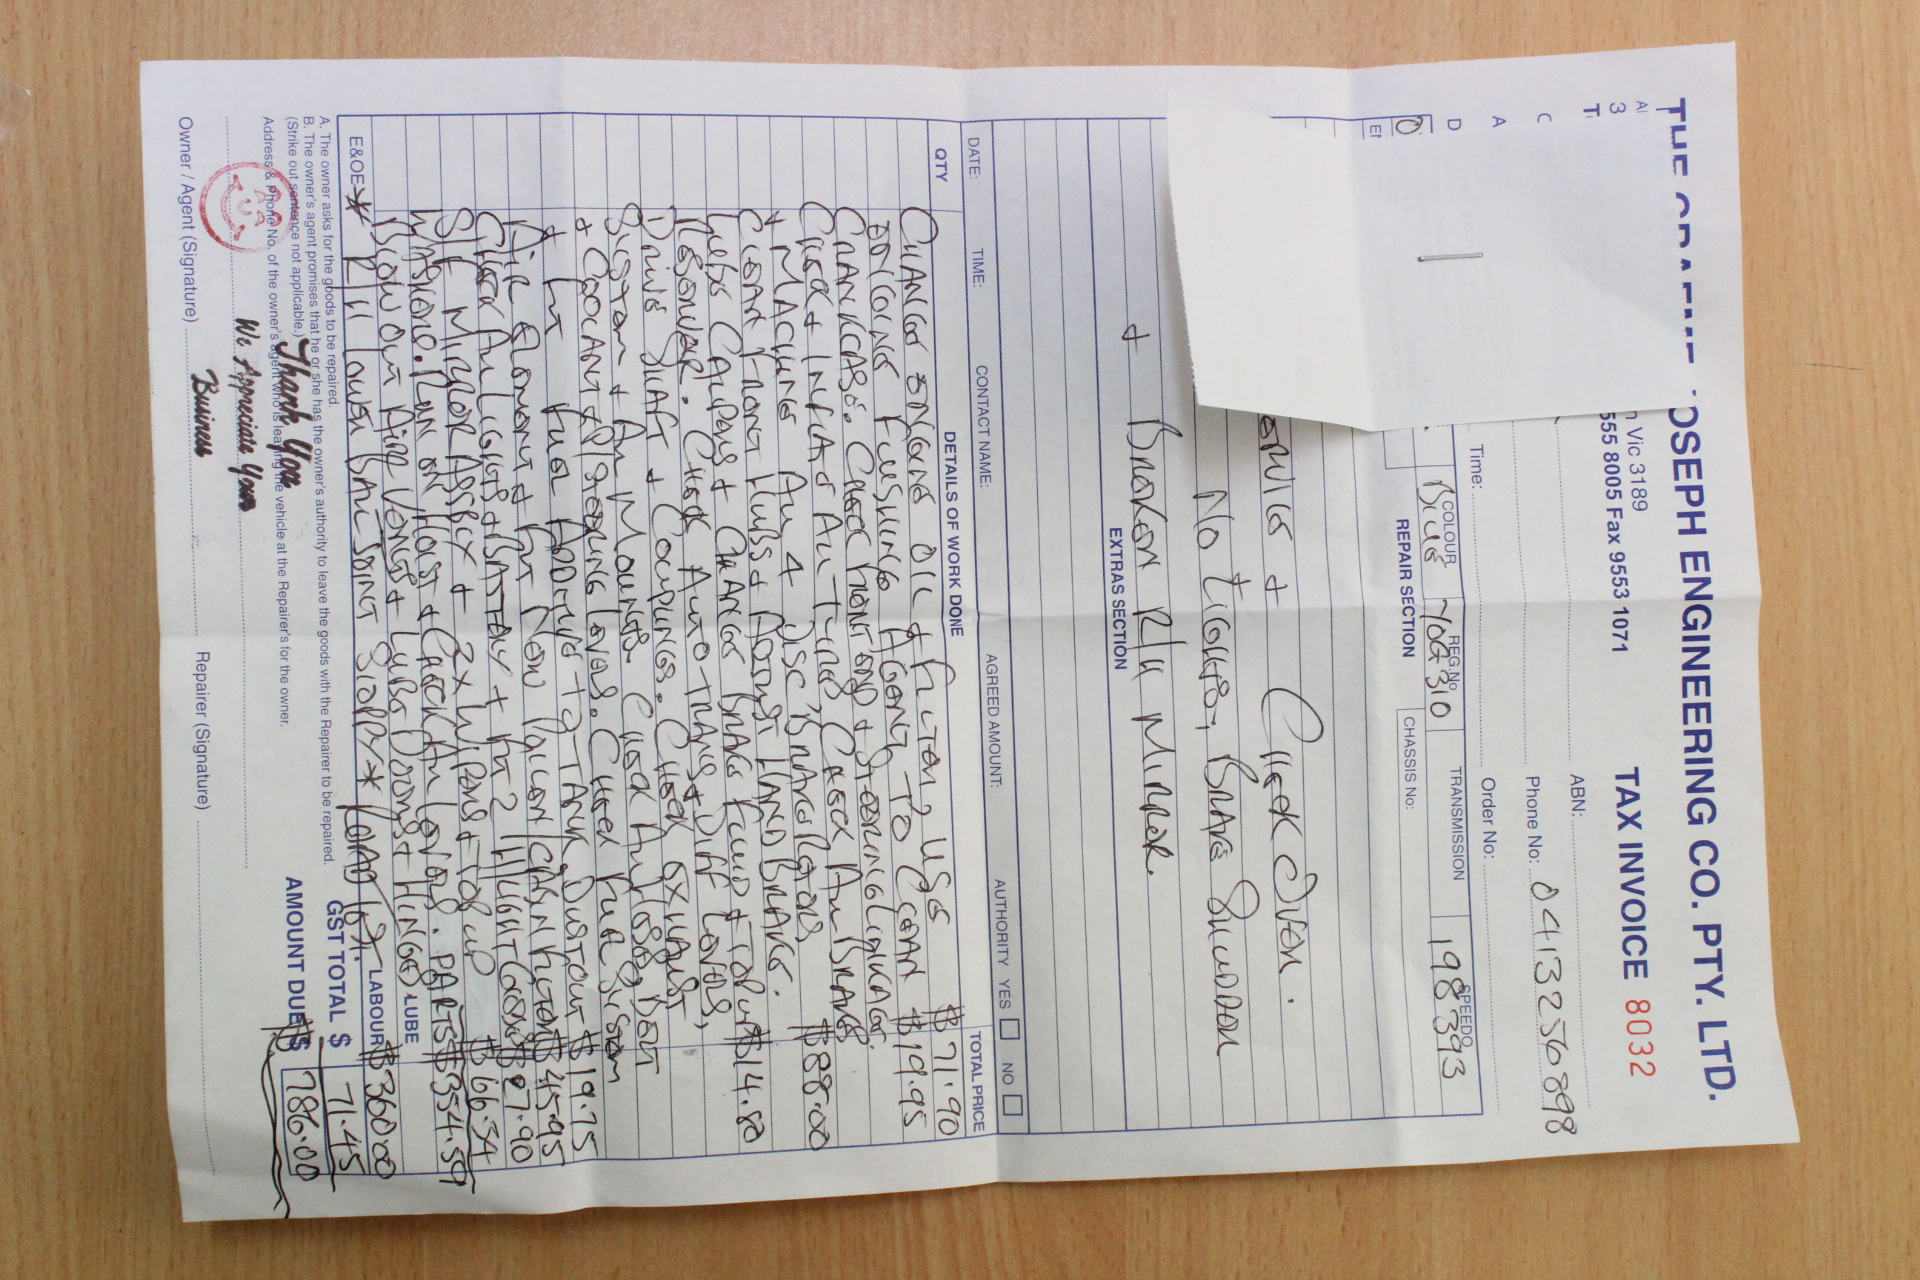 JOSEPH ENGINEERING CO. PTY. LTD.
n Vic 3189
TAX INVOICE 8032
555 8005 Fax 9553 1071
ABN:
Phone No: 0413256898
Time:
Order No:
COLOUR REG.No TRANSMISSION SPEEDO
Blue YOG310 198393
REPAIR SECTION CHASSIS No:
+ Check Over.
No Tight, Brake Shudder
+ Broken R/H Mirror.
EXTRAS SECTION
DATE: TIME: CONTACT NAME: AGREED AMOUNT: AUTHORITY YES NO
QTY DETAILS OF WORK DONE TOTAL PRICE
Change Engine Oil & Filter, Use $71.90
Engine Flushing Agent To Clean $19.95
Crankcase. Check Front End & Steering Linkage.
Check & Inflate All Tyres, Check All Brakes
& Machine All 4 Disc Brake Rotors, $88.00
Clean Front Hubs & Adjust Hand Brake.
Lube Calipers & Change Brake Fluid & Top up $14.80
Reservoir. Check Auto-Trans & Diff Levels,
Drive Shaft & Couplings. Check Exhaust
System & All Mountings. Check All Hoses, Belt
& Coolant & Steering Levels. Check Fuel System
& Fit Fuel Additive To Tank, Dust Out $19.75
Air Element & Fit New Pollen/Cabin Filter $45.95
Check All Lights & Battery & Fit 2 Light Globes $27.90
S/F Mirror Assey & 2x Wipers & Top up $66.34
Washers. Run on Hoist & Check All Levels. PARTS $354.59
Blow Out Air Vents & Lube Doors & Hinges LUBE
E&OE * R/H Lower Ball Joint Sloppy * Road Test. LABOUR $360.00
GST TOTAL $ 71.45
AMOUNT DUE $ 786.00
A. The owner asks for the goods to be repaired.
B. The owner's agent promises that he or she has the owner's authority to leave the goods with the Repairer to be repaired.
(Strike out sentence not applicable.)
Address & Phone No. of the owner's agent who is leaving the vehicle at the Repairer's for the owner.
Thank You
We Appreciate Your
Business
Owner / Agent (Signature) Repairer (Signature)